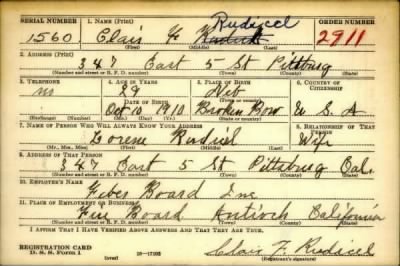 SERIAL NUMBER 1. NAME (Print) Rudicel ORDER NUMBER
1560 Clair F 2911
(First) (Middle) (Last)
2. ADDRESS (Print)
347 East 5 St Pittsburg
(Number and street or R. F. D. number) (Town) (County) (State)
3. TELEPHONE 4. AGE IN YEARS 5. PLACE OF BIRTH 6. COUNTRY OF CITIZENSHIP
no 29 Neb
DATE OF BIRTH (Town or county)
Oct 10 1910 Broken Bow U S A
(Exchange) (Number) (Mo.) (Day) (Yr.) (State or country)
7. NAME OF PERSON WHO WILL ALWAYS KNOW YOUR ADDRESS 8. RELATIONSHIP OF THAT PERSON
Lorene Rudicel Wife
(Mr., Mrs., Miss) (First) (Middle) (Last)
9. ADDRESS OF THAT PERSON
347 East 5 St Pittsburg Cal.
(Number and street or R. F. D. number) (Town) (County) (State)
10. EMPLOYER'S NAME
Board Inc
11. PLACE OF EMPLOYMENT OR BUSINESS
Board Antioch California
(Number and street or R. F. D. number) (Town) (County) (State)
I AFFIRM THAT I HAVE VERIFIED ABOVE ANSWERS AND THAT THEY ARE TRUE.
REGISTRATION CARD
D. S. S. Form 1 (over) Clair F. Rudicel
(Registrant's signature)